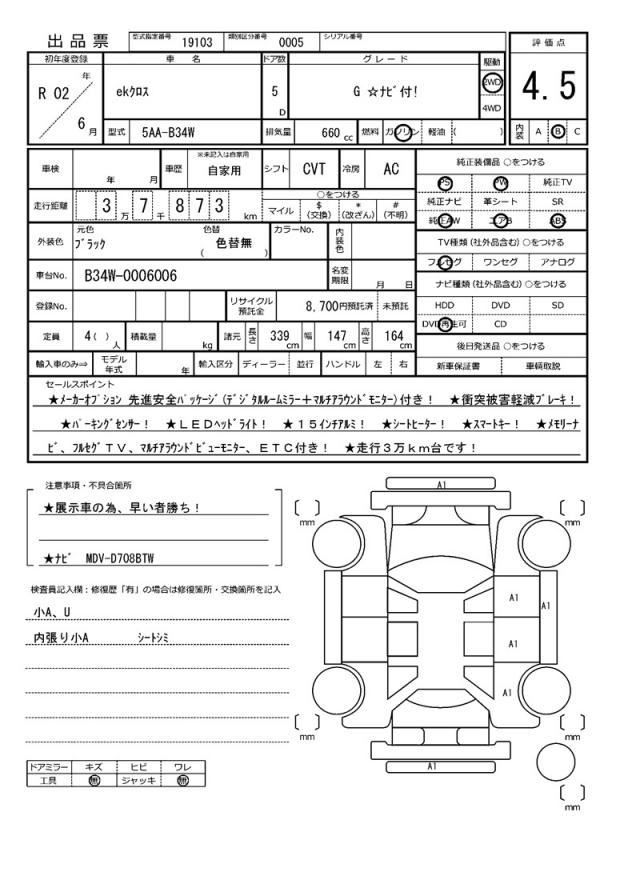 出品票 型式指定番号 19103 類別区分番号 0005 シリアル番号
評価点
4.5
内装 A B C
初年度登録 車名 ドア数 グレード 駆動
R 02 年 6 月
ekｸﾛｽ 5 D G ☆ﾅﾋﾞ付! 2WD 4WD
型式 5AA-B34W 排気量 660 cc 燃料 ガソリン 軽油 ( )
車検 年 月 車歴 ※未記入は自家用 自家用 シフト CVT 冷房 AC
走行距離 3 万 7 千 8 7 3 km
○をつける
マイル $ (交換) * (改ざん) # (不明)
外装色 元色 ﾌﾞﾗｯｸ 色替 ( 色替無 ) カラーNo. 内装色
車台No. B34W-0006006 名変期限 月 日
登録No. リサイクル預託金 8,700円預託済 未預託
定員 4( ) 人 積載量 kg 諸元 長さ 339 cm 幅 147 cm 高さ 164 cm
輸入車のみ⇒ モデル年式 年 輸入区分 ディーラー 並行 ハンドル 左 右
純正装備品 ○をつける
PS PW 純正TV
純正ナビ 革シート SR
純正AW エアB ABS
TV種類 (社外品含む) ○をつける
フルセグ ワンセグ アナログ
ナビ種類 (社外品含む) ○をつける
HDD DVD SD
DVD再生可 CD
後日発送品 ○をつける
新車保証書 車輌取説
セールスポイント
★ﾒｰｶｰｵﾌﾟｼｮﾝ 先進安全ﾊﾟｯｹｰｼﾞ(ﾃﾞｼﾞﾀﾙﾙｰﾑﾐﾗｰ＋ﾏﾙﾁｱﾗｳﾝﾄﾞﾓﾆﾀｰ)付き! ★衝突被害軽減ﾌﾞﾚｰｷ!
★ﾊﾟｰｷﾝｸﾞｾﾝｻｰ! ★ＬＥＤﾍｯﾄﾞﾗｲﾄ! ★１５ｲﾝﾁｱﾙﾐ! ★ｼｰﾄﾋｰﾀｰ! ★ｽﾏｰﾄｷｰ! ★ﾒﾓﾘｰﾅ
ﾋﾞ、ﾌﾙｾｸﾞＴＶ、ﾏﾙﾁｱﾗｳﾝﾄﾞﾋﾞｭｰﾓﾆﾀｰ、ＥＴＣ付き! ★走行３万ｋｍ台です!
注意事項・不具合箇所
★展示車の為、早い者勝ち!
★ﾅﾋﾞ MDV-D708BTW
検査員記入欄：修復歴「有」の場合は修復箇所・交換箇所を記入
小A、U
内張り小A ｼｰﾄｼﾐ
ドアミラー キズ ヒビ ワレ
工具 無 ジャッキ 無
A1
mm
mm
A1
A1
A1
A1
mm
mm
A1
mm